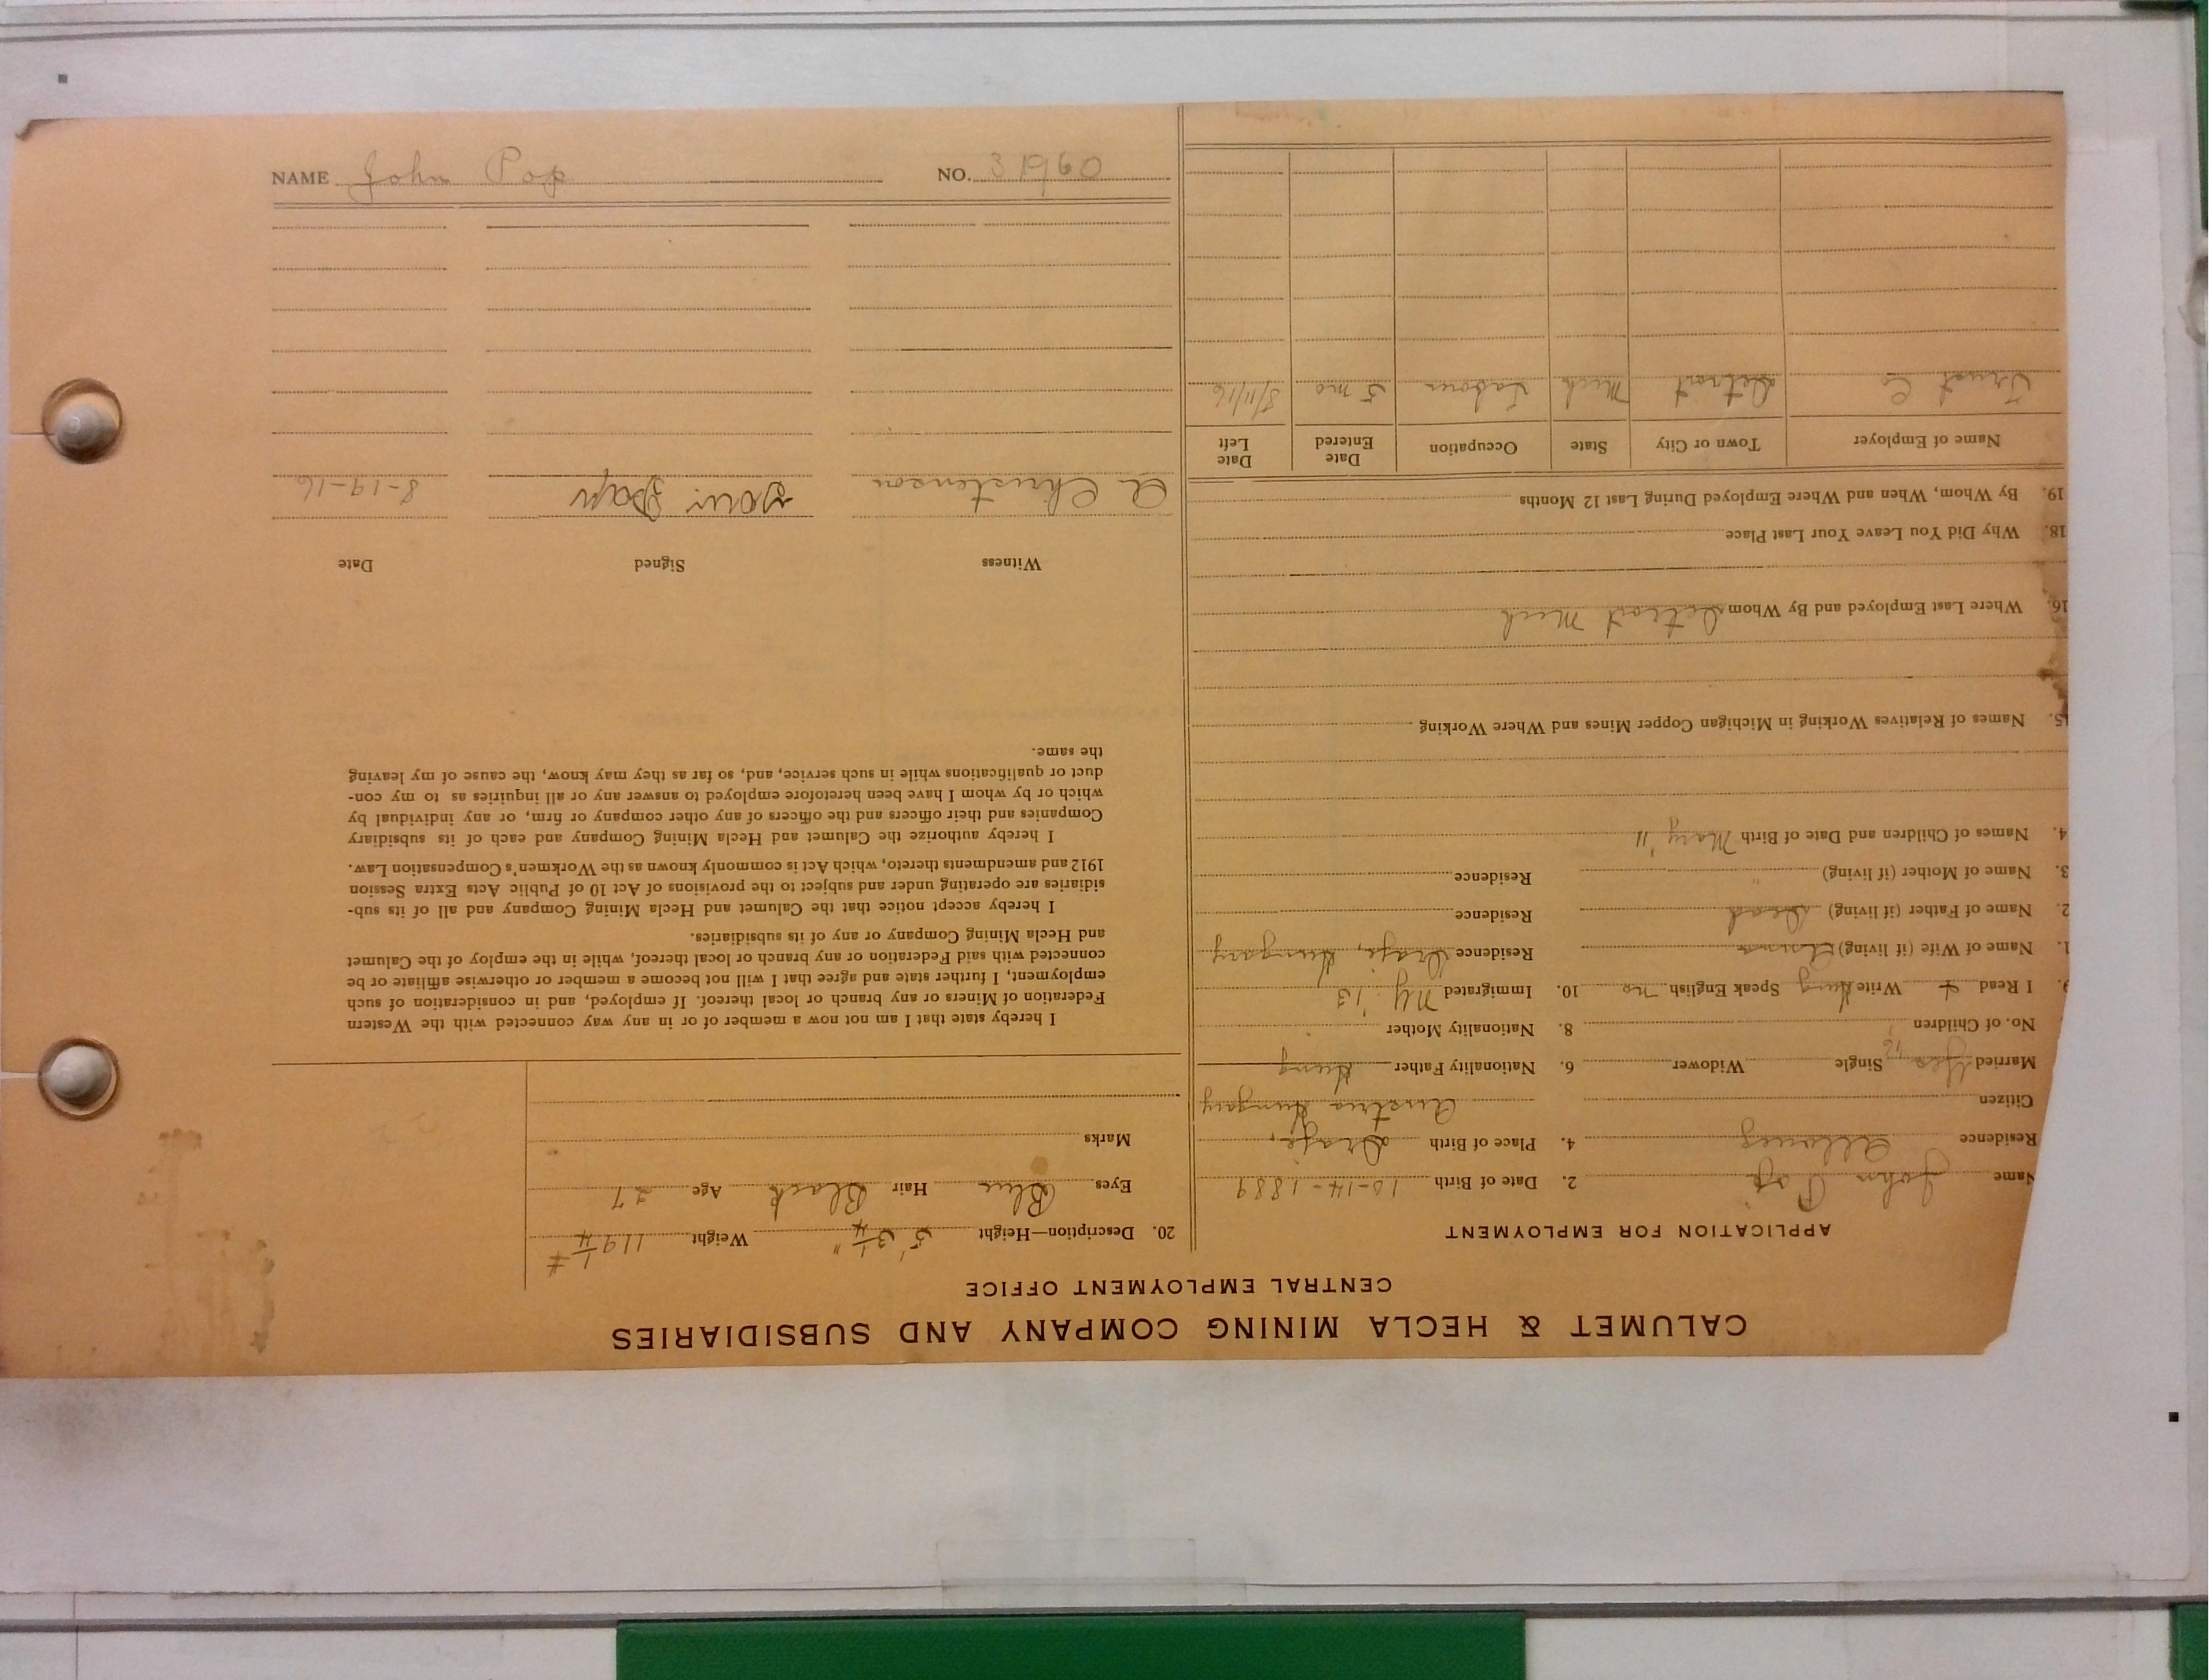 CALUMET & HECLA MINING COMPANY AND SUBSIDIARIES
CENTRAL EMPLOYMENT OFFICE
APPLICATION FOR EMPLOYMENT
Name John Pop 2. Date of Birth 10-14-1889
Residence Allouez 4. Place of Birth
Citizen Austria Hungary
Married Yes Single Widower 6. Nationality Father Hung
No. of Children 8. Nationality Mother "
9. I Read Write Hung Speak English no 10. Immigrated NY '13
1. Name of Wife (if living) Residence Hungary
2. Name of Father (if living) Dead Residence
3. Name of Mother (if living) " Residence
4. Names of Children and Date of Birth Mary '11
5. Names of Relatives Working in Michigan Copper Mines and Where Working
16. Where Last Employed and By Whom Detroit Mich
18. Why Did You Leave Your Last Place
19. By Whom, When and Where Employed During Last 12 Months
Name of Employer Town or City State Occupation Date Entered Date Left
Co Detroit Mich Laborer 5 mo 8/11/16
20. Description—Height 5' 3 1/4" Weight 119 1/4 #
Eyes Blue Hair Black Age 27
Marks
I hereby state that I am not now a member of or in any way connected with the Western
Federation of Miners or any branch or local thereof. If employed, and in consideration of such
employment, I further state and agree that I will not become a member or otherwise affiliate or be
connected with said Federation or any branch or local thereof, while in the employ of the Calumet
and Hecla Mining Company or any of its subsidiaries.
I hereby accept notice that the Calumet and Hecla Mining Company and all of its sub-
sidiaries are operating under and subject to the provisions of Act 10 of Public Acts Extra Session
1912 and amendments thereto, which Act is commonly known as the Workmen's Compensation Law.
I hereby authorize the Calumet and Hecla Mining Company and each of its subsidiary
Companies and their officers and the officers of any other company or firm, or any individual by
which or by whom I have been heretofore employed to answer any or all inquiries as to my con-
duct or qualifications while in such service, and, so far as they may know, the cause of my leaving
the same.
Witness Signed Date
A Christenson 8-19-16
NAME John Pop NO. 31960